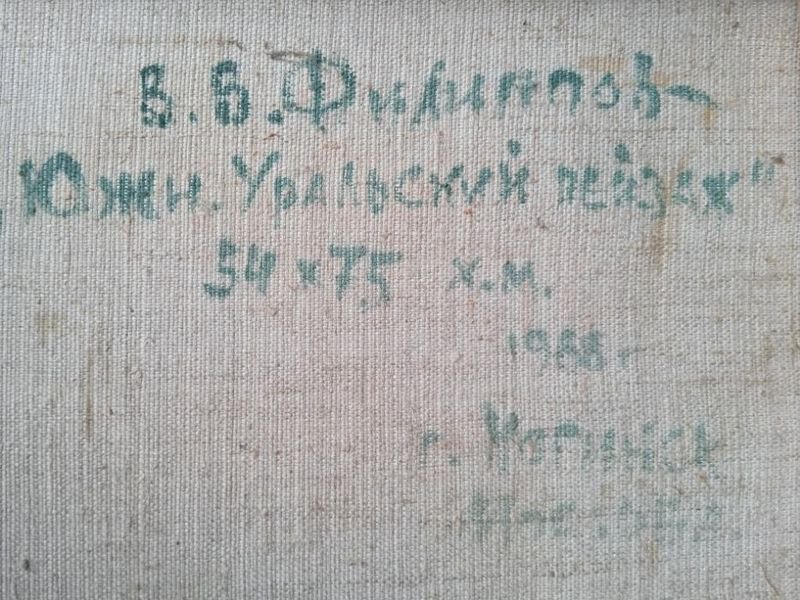 В.В. Филиппов
„Южн. Уральский пейзаж"
54 x 75 х.м.
1988 г.
г. Копейск